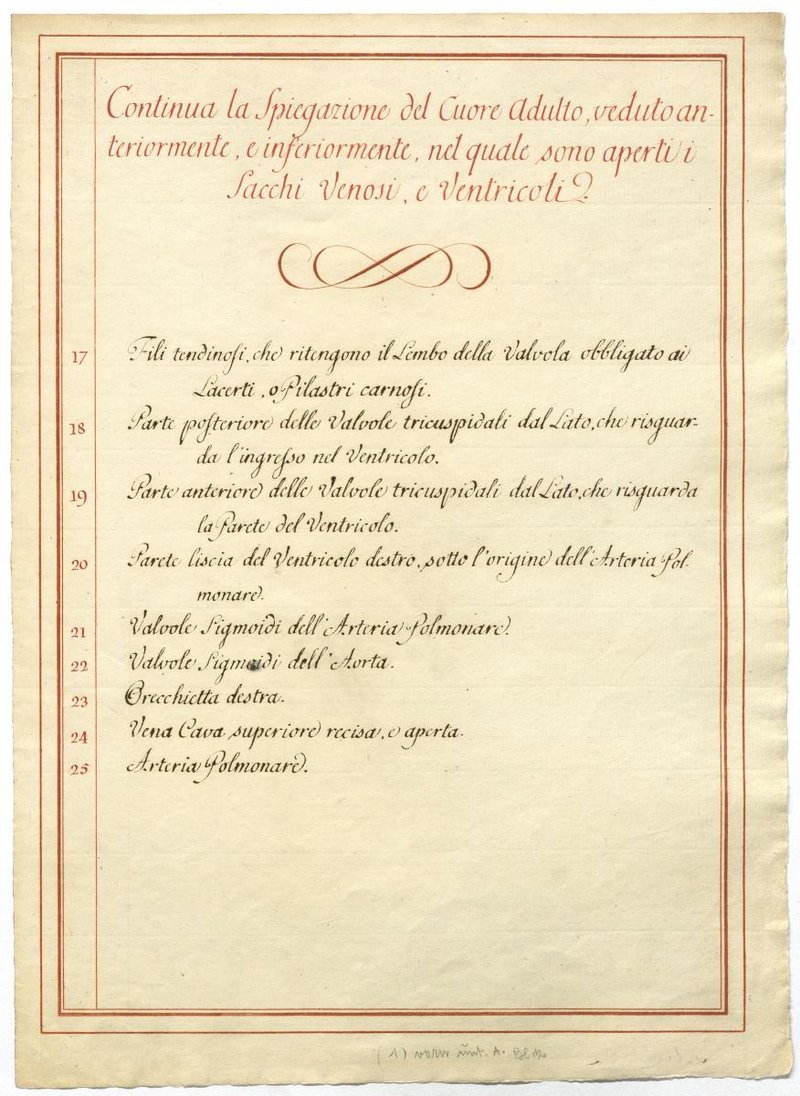 Continua la Spiegazione del Cuore Adulto, veduto an-
teriormente, e inferiormente, nel quale sono aperti i
Sacchi Venosi, e Ventricoli.
17 Fili tendinosi, che ritengono il Lembo della Valvola obbligato ai
Lacerti, o Pilastri carnosi.
18 Parte posteriore delle Valvole tricuspidali dal Lato, che risguar-
da l'ingresso nel Ventricolo.
19 Parte anteriore delle Valvole tricuspidali dal Lato, che risguarda
la Parete del Ventricolo.
20 Parete liscia del Ventricolo destro, sotto l'origine dell'Arteria Pol-
monare.
21 Valvole Sigmoidi dell'Arteria Polmonare.
22 Valvole Sigmoidi dell'Aorta.
23 Orecchietta destra.
24 Vena Cava superiore recisa, e aperta.
25 Arteria Polmonare.